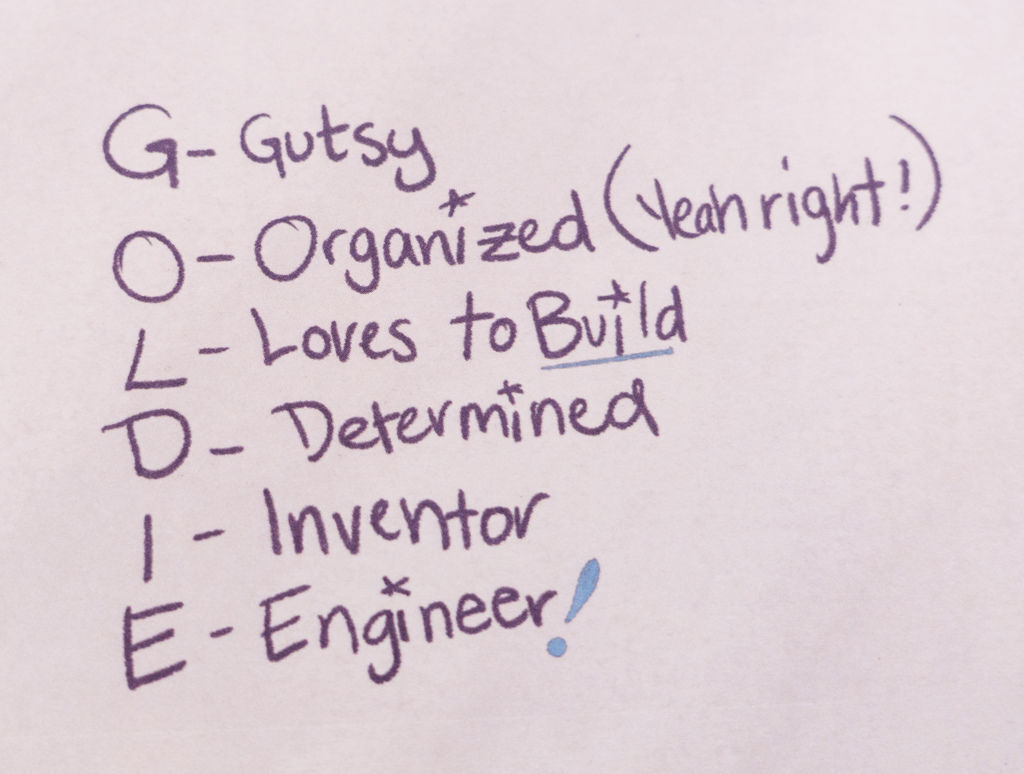 G- Gutsy
O- Organized (Yeah right!)
L - Loves to Build
D - Determined
I - Inventor
E - Engineer!